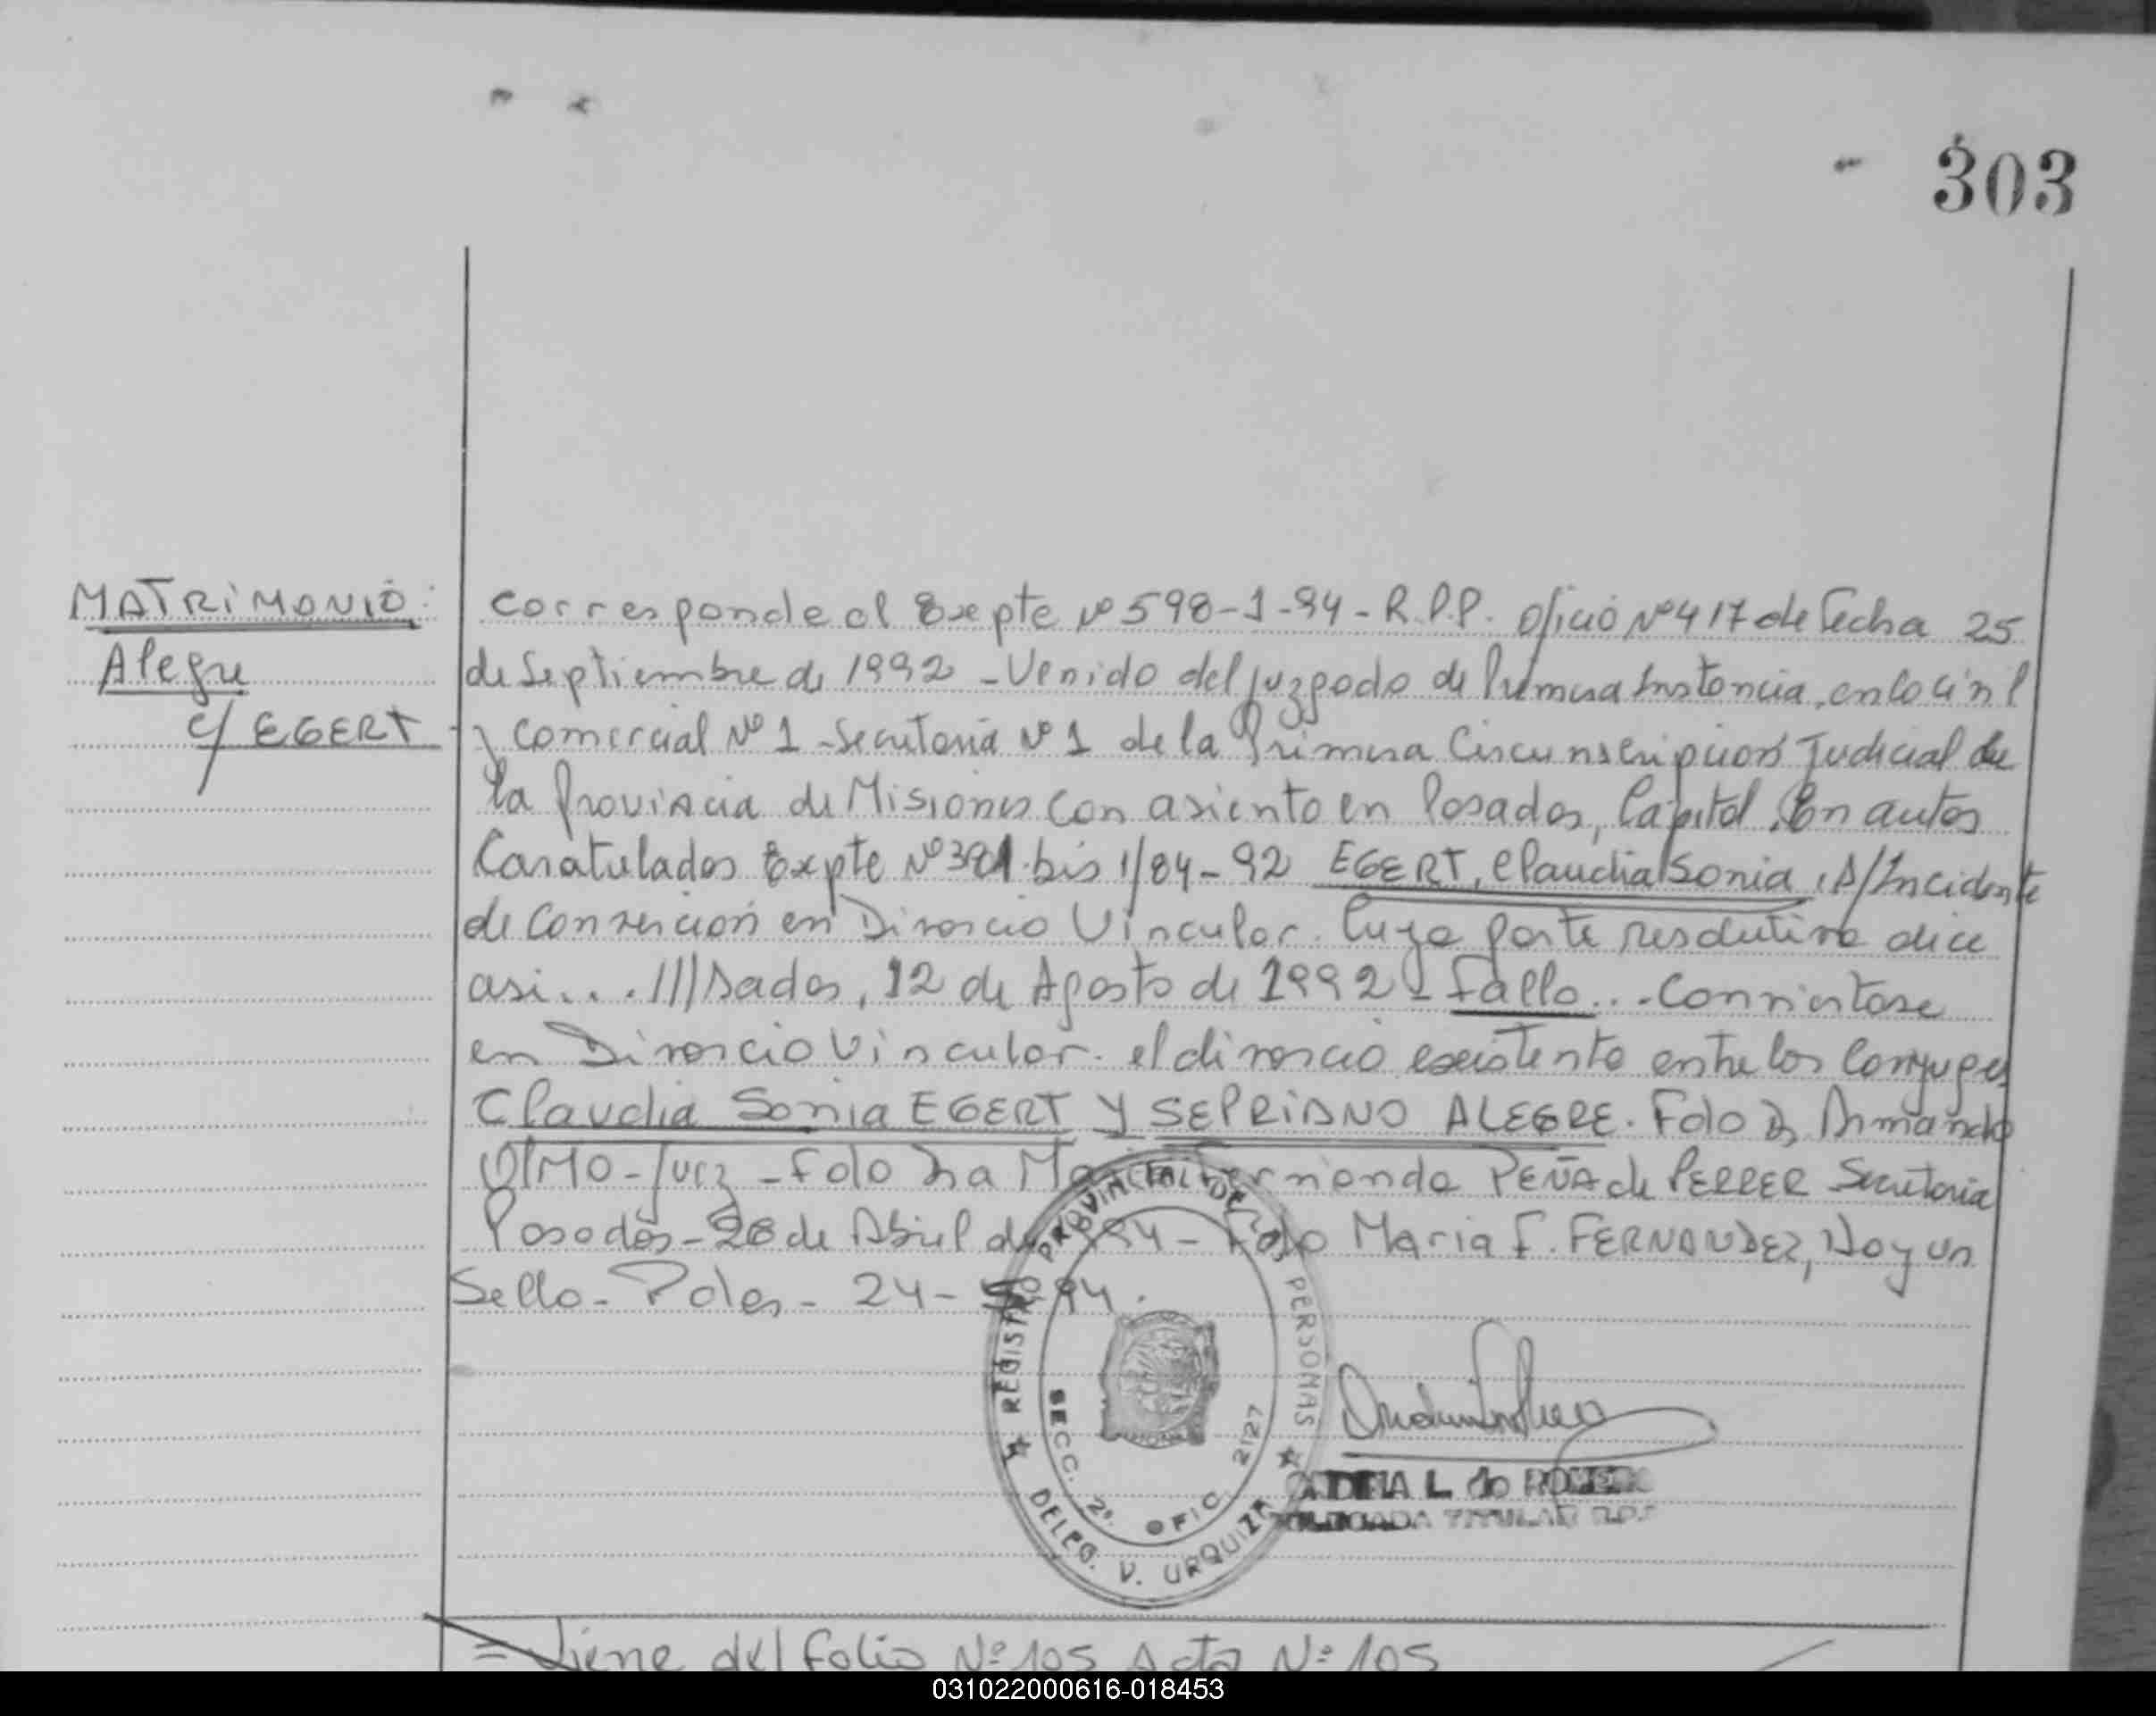 303
MATRIMONIO:
Alegre
c/ EGERT
Corresponde al Expte Nº 598-1-94- R.P.P. Oficio Nº 417 de fecha 25
de Septiembre de 1992 - Venido del juzgado de Primera Instancia, en lo Civil
y Comercial Nº 1 - Secretaria Nº 1 de la Primera Circunscripción Judicial de
la Provincia de Misiones con asiento en Posadas, Capital. En autos
Caratulados Expte Nº 381 bis 1/84-92 EGERT, Claudia Sonia, S/Incidente
de Conversión en Divorcio Vincular. Cuya parte resolutiva dice
asi... ///sadas, 12 de Agosto de 1992 - Fallo... Conviertase
en Divorcio Vincular. el divorcio existente entre los Conyuges
Claudia Sonia EGERT Y SEPRIANO ALEGRE. Fdo Dr Armando
OLMO - Juez - Fdo Dra Maria Fernanda PEÑA de FERRER Secretaria
Posadas - 28 de Abril de 1994 - Fdo Maria F. FERNANDEZ, Hay un
Sello - Pdas - 24-5-94.
REGISTRO PROVINCIAL DE LAS PERSONAS
SECC. 2º. OFIC. 2127
DELEG. V. URQUIZA
L. de ROMERO
DELEGADA TITULAR R.P.P.
= Viene del folio Nº 105 Acta Nº 105
031022000616-018453